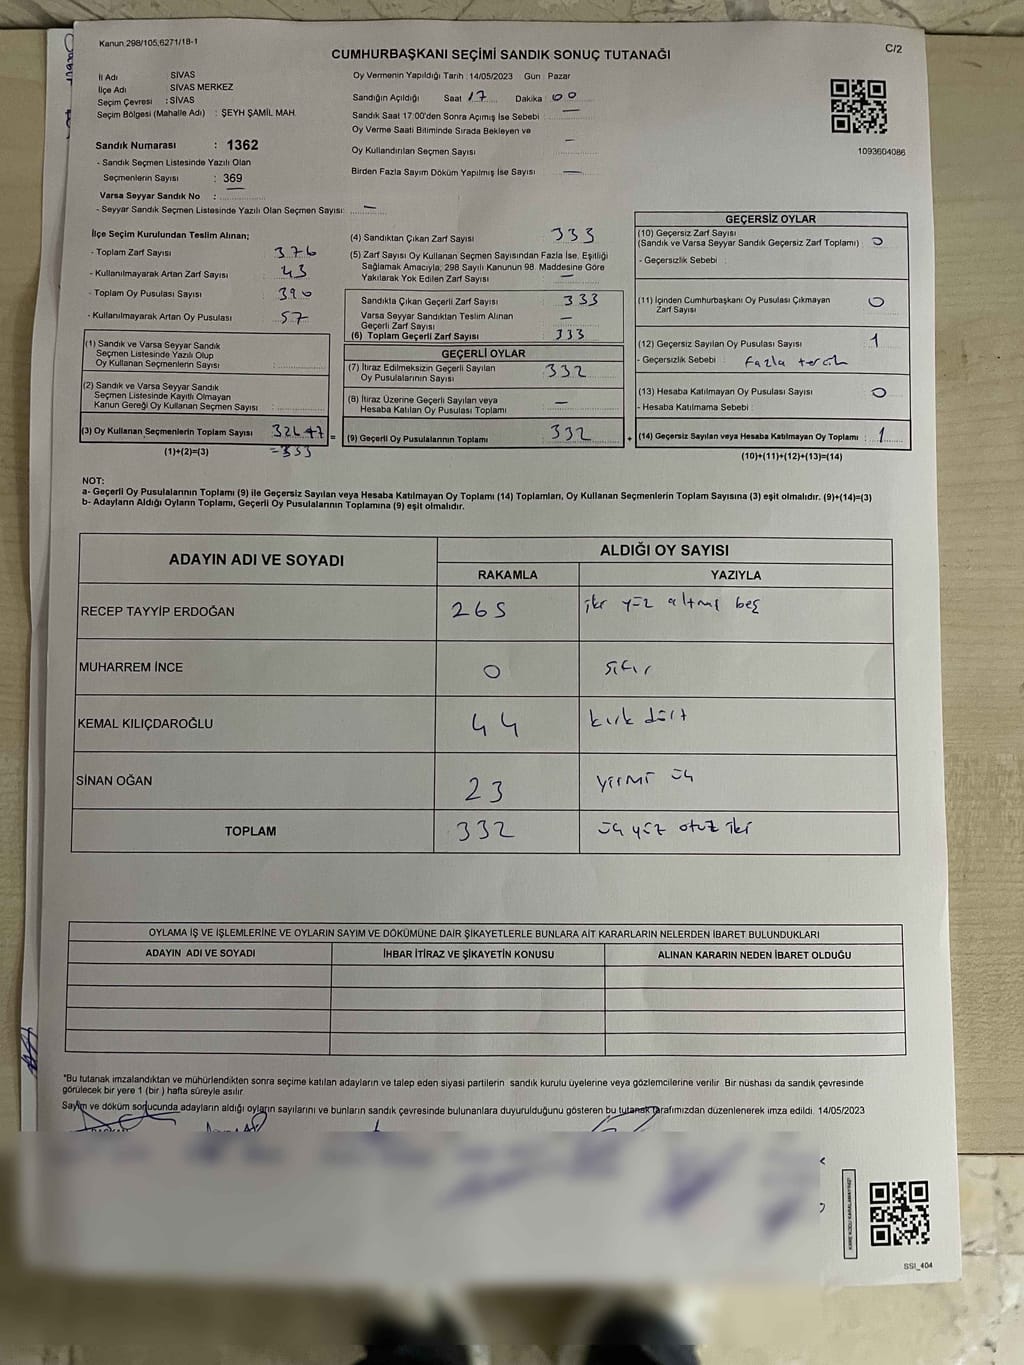 Kanun 298/105;6271/18-1
C/2
CUMHURBAŞKANI SEÇİMİ SANDIK SONUÇ TUTANAĞI
İl Adı : SİVAS
İlçe Adı : SİVAS MERKEZ
Seçim Çevresi : SİVAS
Seçim Bölgesi (Mahalle Adı) : ŞEYH ŞAMİL MAH.
Sandık Numarası : 1362
- Sandık Seçmen Listesinde Yazılı Olan
Seçmenlerin Sayısı : 369
Varsa Seyyar Sandık No : —
- Seyyar Sandık Seçmen Listesinde Yazılı Olan Seçmen Sayısı: —
Oy Vermenin Yapıldığı Tarih : 14/05/2023 Gün : Pazar
Sandığın Açıldığı Saat 17 Dakika 00
Sandık Saat 17:00'den Sonra Açımış İse Sebebi : —
Oy Verme Saati Bitiminde Sırada Bekleyen ve
Oy Kullandırılan Seçmen Sayısı —
Birden Fazla Sayım Döküm Yapılmış İse Sayısı —
1093604086
İlçe Seçim Kurulundan Teslim Alınan;
- Toplam Zarf Sayısı 376
- Kullanılmayarak Artan Zarf Sayısı 43
- Toplam Oy Pusulası Sayısı 390
- Kullanılmayarak Artan Oy Pusulası 57
(1) Sandık ve Varsa Seyyar Sandık
Seçmen Listesinde Yazılı Olup
Oy Kullanan Seçmenlerin Sayısı
(2) Sandık ve Varsa Seyyar Sandık
Seçmen Listesinde Kayıtlı Olmayan
Kanun Gereği Oy Kullanan Seçmen Sayısı
(3) Oy Kullanan Seçmenlerin Toplam Sayısı 326+7
=333
(1)+(2)=(3)
(4) Sandıktan Çıkan Zarf Sayısı 333
(5) Zarf Sayısı Oy Kullanan Seçmen Sayısından Fazla İse, Eşitliği
Sağlamak Amacıyla; 298 Sayılı Kanunun 98. Maddesine Göre
Yakılarak Yok Edilen Zarf Sayısı —
Sandıkla Çıkan Geçerli Zarf Sayısı 333
Varsa Seyyar Sandıktan Teslim Alınan
Geçerli Zarf Sayısı —
(6) Toplam Geçerli Zarf Sayısı 333
GEÇERLİ OYLAR
(7) İtiraz Edilmeksizin Geçerli Sayılan
Oy Pusulalarının Sayısı 332
(8) İtiraz Üzerine Geçerli Sayılan veya
Hesaba Katılan Oy Pusulası Toplamı —
= (9) Geçerli Oy Pusulalarının Toplamı 332
GEÇERSİZ OYLAR
(10) Geçersiz Zarf Sayısı
(Sandık ve Varsa Seyyar Sandık Geçersiz Zarf Toplamı) 0
- Geçersizlik Sebebi :
(11) İçinden Cumhurbaşkanı Oy Pusulası Çıkmayan
Zarf Sayısı 0
(12) Geçersiz Sayılan Oy Pusulası Sayısı 1
- Geçersizlik Sebebi : Fazla tercih
(13) Hesaba Katılmayan Oy Pusulası Sayısı 0
- Hesaba Katılmama Sebebi :
+ (14) Geçersiz Sayılan veya Hesaba Katılmayan Oy Toplamı : 1
(10)+(11)+(12)+(13)=(14)
NOT:
a- Geçerli Oy Pusulalarının Toplamı (9) ile Geçersiz Sayılan veya Hesaba Katılmayan Oy Toplamı (14) Toplamları, Oy Kullanan Seçmenlerin Toplam Sayısına (3) eşit olmalıdır. (9)+(14)=(3)
b- Adayların Aldığı Oyların Toplamı, Geçerli Oy Pusulalarının Toplamına (9) eşit olmalıdır.
ADAYIN ADI VE SOYADI
ALDIĞI OY SAYISI
RAKAMLA YAZIYLA
RECEP TAYYİP ERDOĞAN 265 iki yüz altmış beş
MUHARREM İNCE 0 sıfır
KEMAL KILIÇDAROĞLU 44 kırk dört
SİNAN OĞAN 23 yirmi üç
TOPLAM 332 üç yüz otuz iki
OYLAMA İŞ VE İŞLEMLERİNE VE OYLARIN SAYIM VE DÖKÜMÜNE DAİR ŞİKAYETLERLE BUNLARA AİT KARARLARIN NELERDEN İBARET BULUNDUKLARI
ADAYIN ADI VE SOYADI İHBAR İTİRAZ VE ŞİKAYETİN KONUSU ALINAN KARARIN NEDEN İBARET OLDUĞU
*Bu tutanak imzalandıktan ve mühürlendikten sonra seçime katılan adayların ve talep eden siyasi partilerin sandık kurulu üyelerine veya gözlemcilerine verilir. Bir nüshası da sandık çevresinde
görülecek bir yere 1 (bir ) hafta süreyle asılır.
Sayım ve döküm sonucunda adayların aldığı oyların sayılarını ve bunların sandık çevresinde bulunanlara duyurulduğunu gösteren bu tutanak tarafımızdan düzenlenerek imza edildi. 14/05/2023
SSI_404